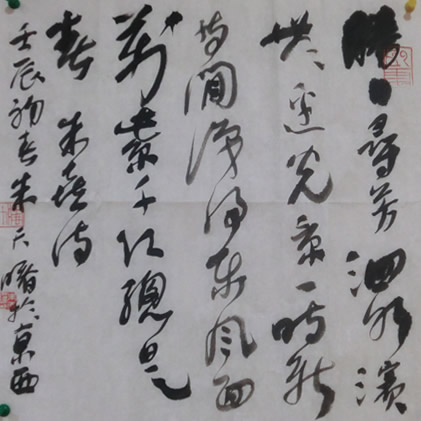 勝日尋芳泗水濱
無邊光景一時新
等閒識得東風面
萬紫千紅總是
春 朱熹詩
壬辰初春朱天曙於京西